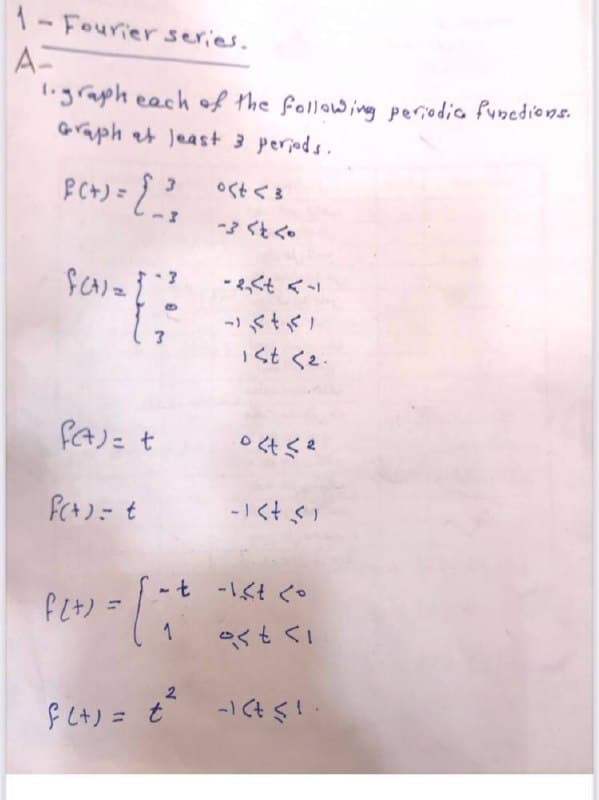 1 - Fourier series.
A-
1. graph each of the following periodic funcdions.
Graph at least 3 periods.
f(t) = { 3 0<t<3
-3 -3<t<0
f(t) = { -3 -2≤t<-1
0 -1≤t≤1
3 1<t<2.
f(t) = t 0<t≤2
f(t) = t -1<t≤1
f(t) = { -t -1≤t<0
1 0≤t<1
f(t) = t² -1<t≤1.